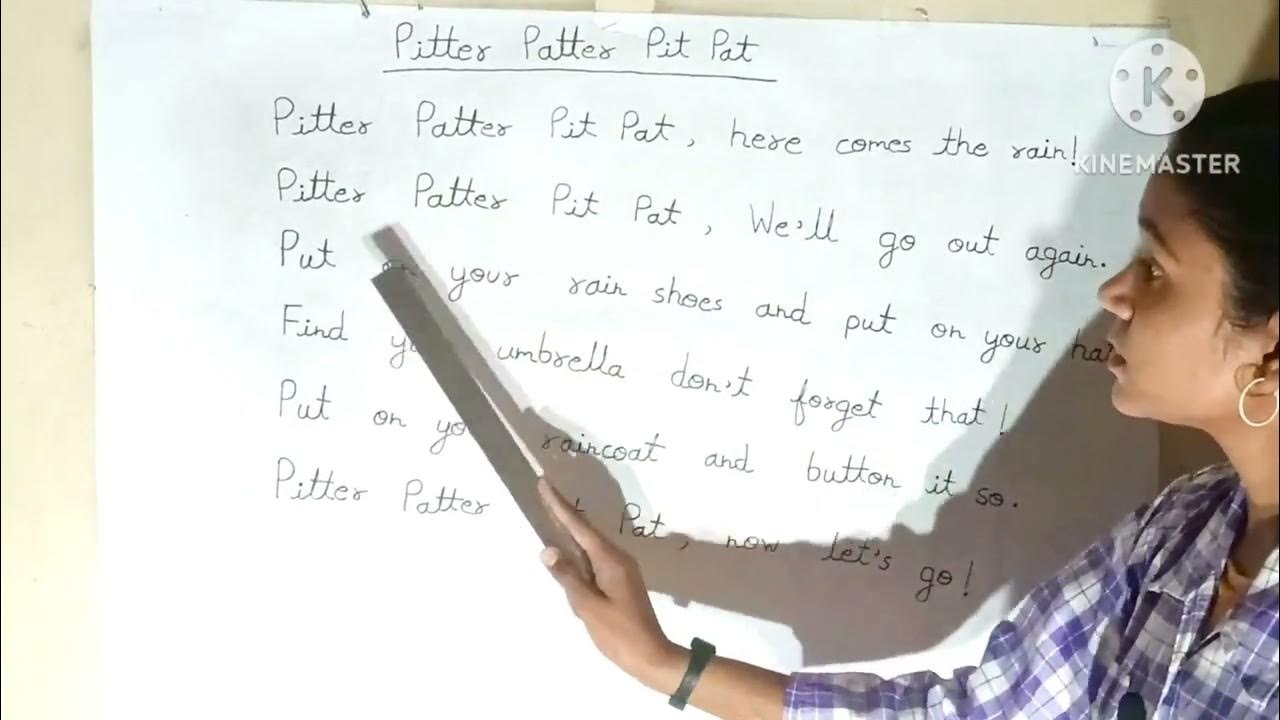 Pitter Patter Pit Pat
Pitter Patter Pit Pat, here comes the rain!
Pitter Patter Pit Pat, We'll go out again.
Put your rain shoes and put on your
Find umbrella don't forget that!
Put on raincoat and button it so.
Pitter Patter Pat, now let's go!
K
KINEMASTER